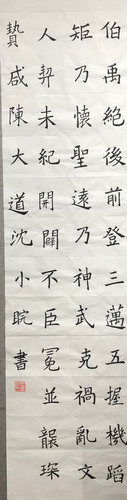 伯禹絕後前登三邁五握機蹈
矩乃懷聖遠乃神武克禍亂文
人契未紀開闢不臣冕並襲琛
贄咸陳大道沈小晥書